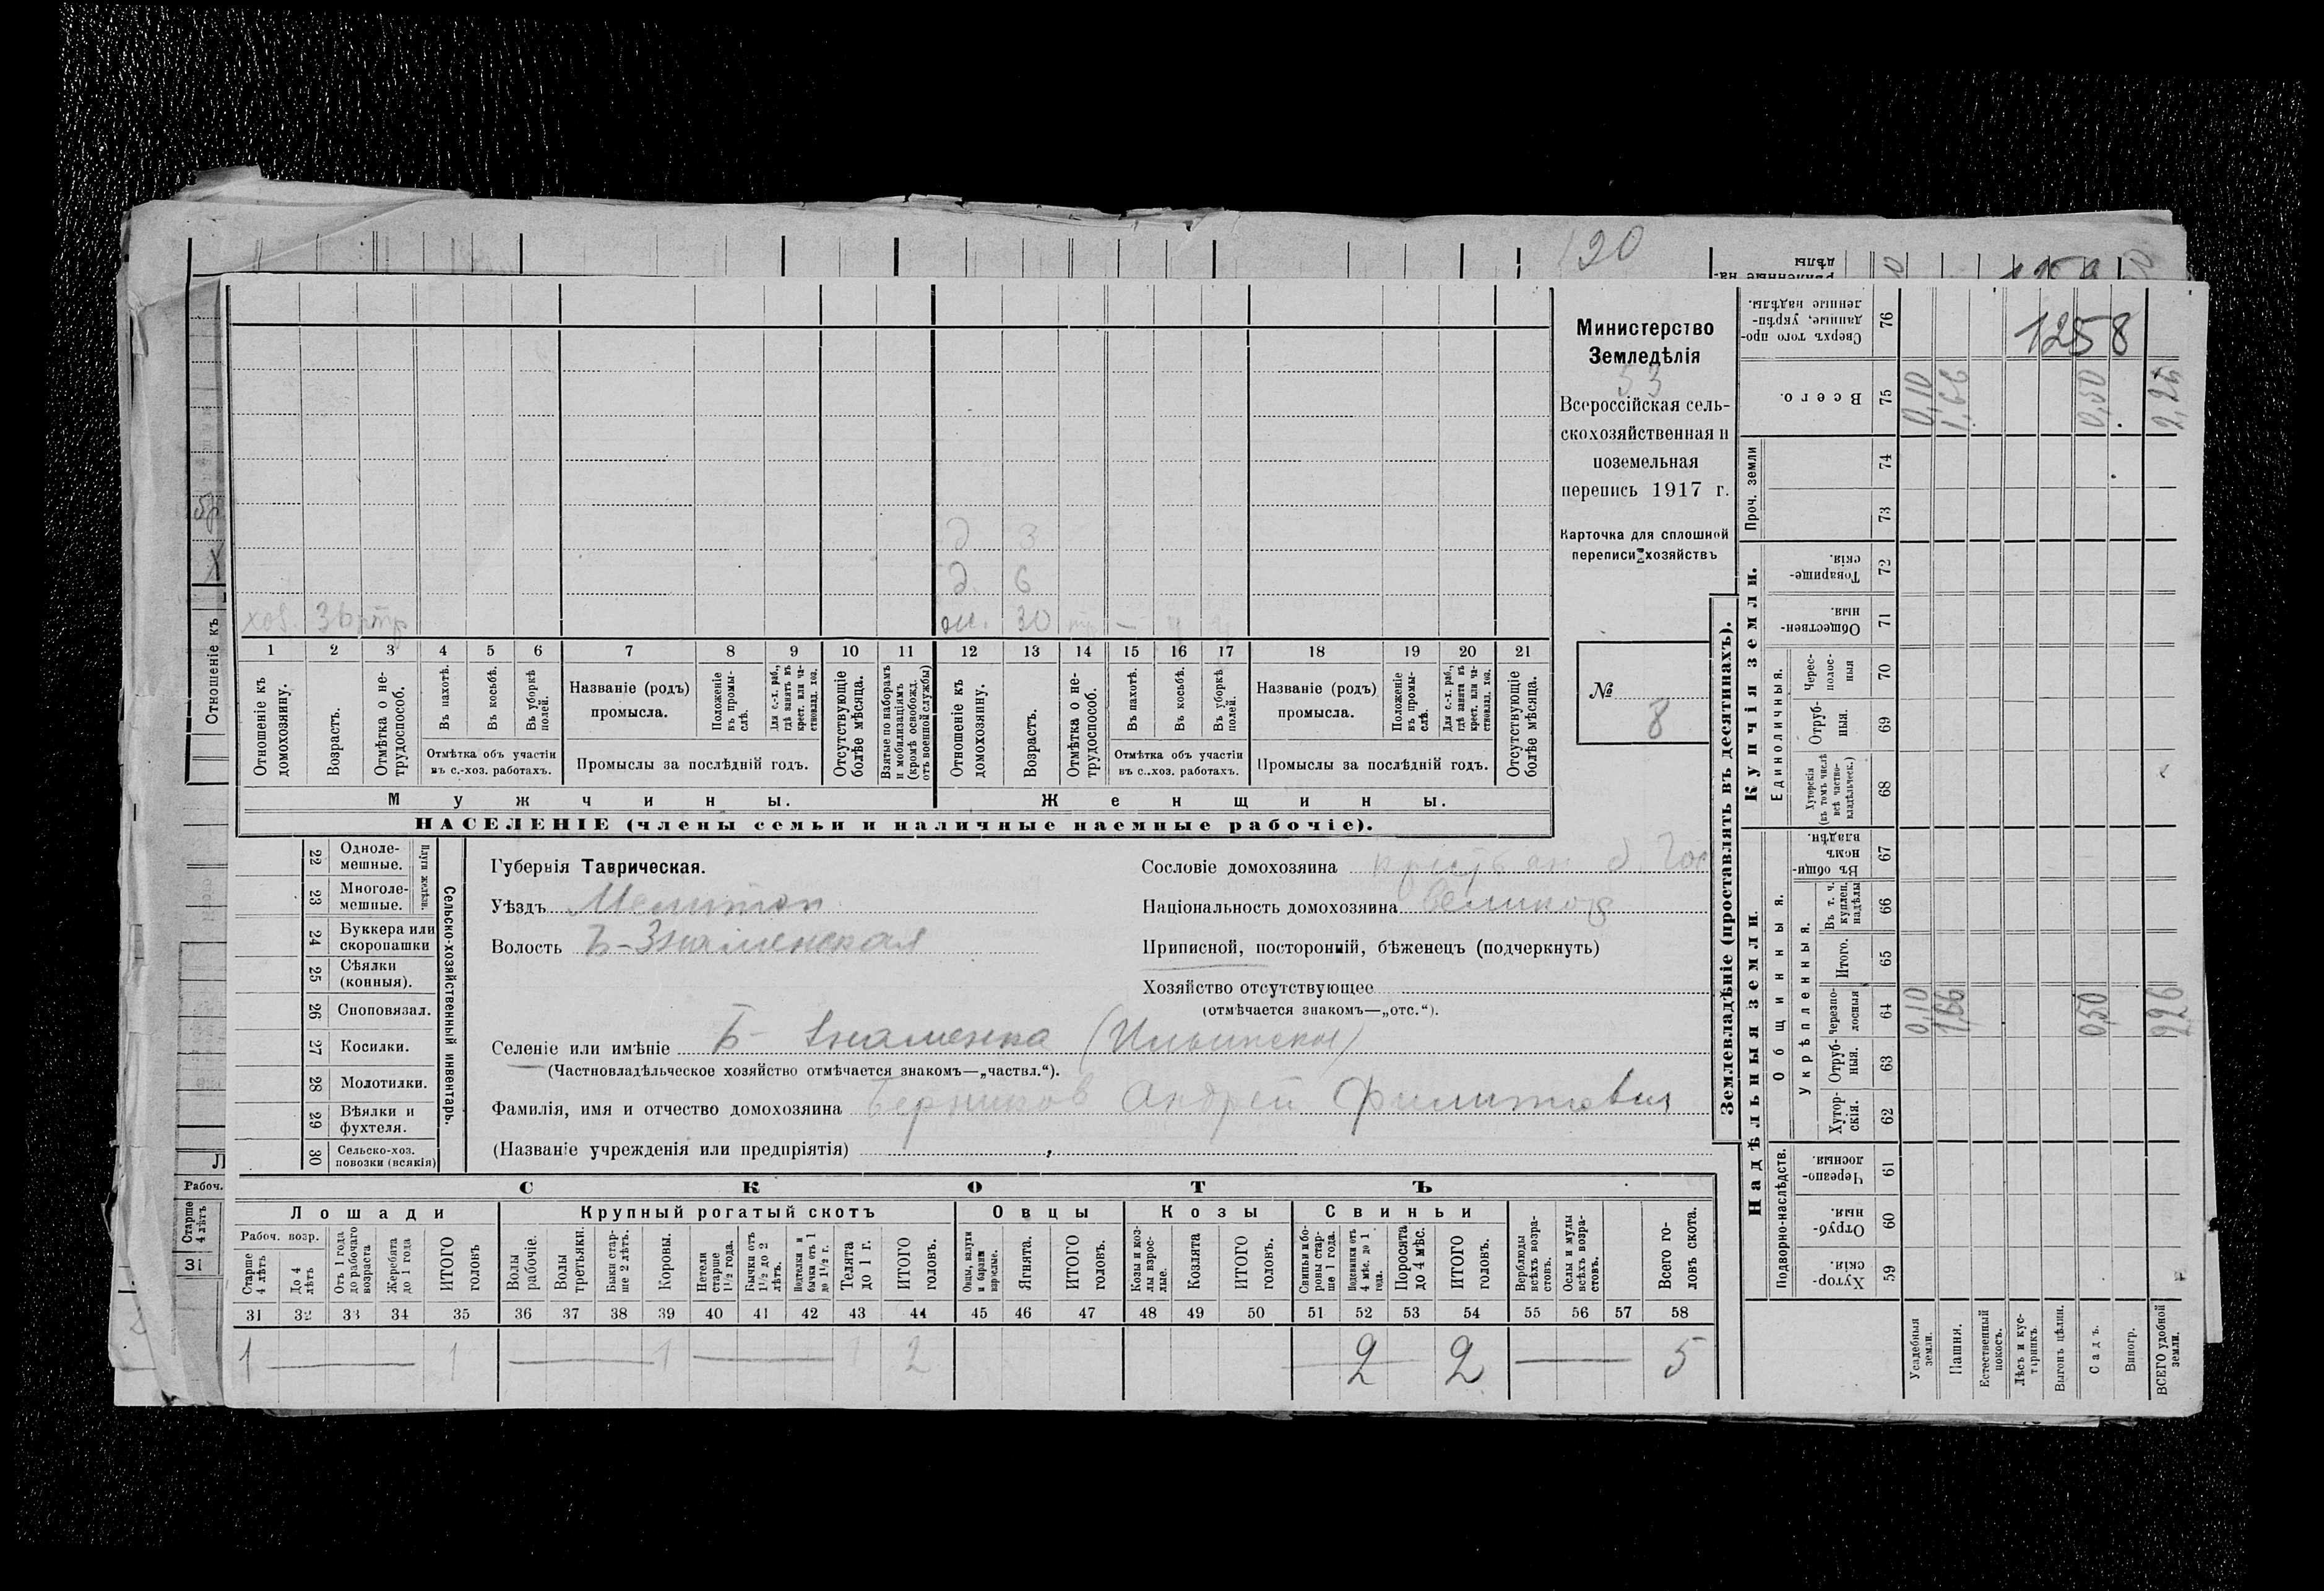 120
Министерство
Земледѣлія
53
Всероссійская сель-
скохозяйственная и
поземельная
перепись 1917 г.
Карточка для сплошной
переписи хозяйствъ
№
8
д 3
д. 6
хоз. 36
ж. 30 тр — ч ч
1 2 3 4 5 6 7 8 9 10 11 12 13 14 15 16 17 18 19 20 21
Отношеніе къ домохозяину.
Возрастъ.
Отмѣтка о не-трудоспособ.
Въ пахотѣ.
Въ косьбѣ.
Въ уборкѣ полей.
Отмѣтка объ участіи
въ с.-хоз. работахъ.
Названіе (родъ)
промысла.
Положеніе въ промы-слѣ.
Для с.-х. раб., гдѣ занятъ въ крест. или ча-стновлад. хоз.
Промыслы за послѣдній годъ.
Отсутствующіе болѣе мѣсяца.
Взятые по наборамъ и мобилизаціямъ (кромѣ освобожд. отъ военной службы)
Отношеніе къ домохозяину.
Возрастъ.
Отмѣтка о не-трудоспособ.
Въ пахотѣ.
Въ косьбѣ.
Въ уборкѣ полей.
Отмѣтка объ участіи
въ с.-хоз. работахъ.
Названіе (родъ)
промысла.
Положеніе въ промы-слѣ.
Для с.-х. раб., гдѣ занята въ крест. или ча-стновлад. хоз.
Промыслы за послѣдній годъ.
Отсутствующіе болѣе мѣсяца.
Мужчины. Женщины.
НАСЕЛЕНІЕ (члены семьи и наличные наемные рабочіе).
Сельско-хозяйственный инвентарь.
Плуги желѣзн.
22 Одноле-мешные.
23 Многоле-мешные.
24 Буккера или скоропашки
25 Сѣялки (конныя).
26 Сноповязал.
27 Косилки.
28 Молотилки.
29 Вѣялки и фухтеля.
30 Сельско-хоз. повозки (всякія)
Губернія Таврическая.
Уѣздъ Мелитоп
Волость Б-Знаменская
Сословіе домохозяина крестьян. б. Гос
Національность домохозяина Великор
Приписной, посторонній, бѣженецъ (подчеркнуть)
Хозяйство отсутствующее
(отмѣчается знакомъ—„отс.“).
Селеніе или имѣніе Б- Знаменка (Ильинское)
(Частновладѣльческое хозяйство отмѣчается знакомъ—„частвл.“).
Фамилія, имя и отчество домохозяина Берников Андрей Филиппович
(Названіе учрежденія или предпріятія)
СКОТЪ
Лошади Крупный рогатый скотъ Овцы Козы Свиньи
Рабоч. возр.
Старше 4 лѣтъ
До 4 лѣтъ
Отъ 1 года до рабочаго возраста
Жеребята до 1 года
ИТОГО головъ
Волы рабочіе.
Волы третьяки.
Быки стар-ше 2 лѣтъ.
Коровы.
Нетели старше 1½ года.
Бычки отъ 1½ до 2 лѣтъ.
Нетелки и бычки отъ 1 до 1½ г.
Телята до 1 г.
ИТОГО головъ.
Овцы, валухи и бараны взрослые.
Ягнята.
ИТОГО головъ.
Козы и коз-лы взрос-лые.
Козлята
ИТОГО головъ.
Свиньи и бо-ровы стар-ше 1 года.
Подсвинки отъ 4 мѣс. до 1 года.
Поросята до 4 мѣс.
ИТОГО головъ.
Верблюды всѣхъ возра-стовъ.
Ослы и мулы всѣхъ возра-стовъ.
Всего го-ловъ скота.
31 32 33 34 35 36 37 38 39 40 41 42 43 44 45 46 47 48 49 50 51 52 53 54 55 56 57 58
1 — 1 — 1 — 1 2 2 2 — 5
Землевладѣніе (проставлять въ десятинахъ).
Надѣльныя земли. Купчія земли.
Подворно-наслѣдств.
Общинныя.
Укрѣпленныя.
Единоличныя.
Проч. земли
Хутор-скія. 59
Отруб-ныя. 60
Черезпо-лосныя. 61
Хутор-скія. 62
Отруб-ныя. 63
Черезпо-лосныя 64
Итого. 65
Въ т. ч. куплен. надѣлы 66
Въ общи-номъ владѣн. 67
Хуторскія (въ томъ числѣ всѣ частно-владѣльческ.) 68
Отруб-ныя. 69
Черес-полос-ныя 70
Обществен-ныя. 71
Товарище-скія. 72
73
74
Всего. 75
Сверхъ того про-данные, укрѣп-ленные надѣлы. 76
Усадебныя земли. 0,10 0,10
Пашня. 1,66 1,66
Естественный покосъ.
Лѣсъ и кус-тарникъ.
Выгонъ цѣлин.
Садъ. 0,50 0,50
Виногр.
ВСЕГО удобной земли. 2,26 2,26
1258
Отношеніе къ
Рабоч.
Старше 4 лѣтъ
31